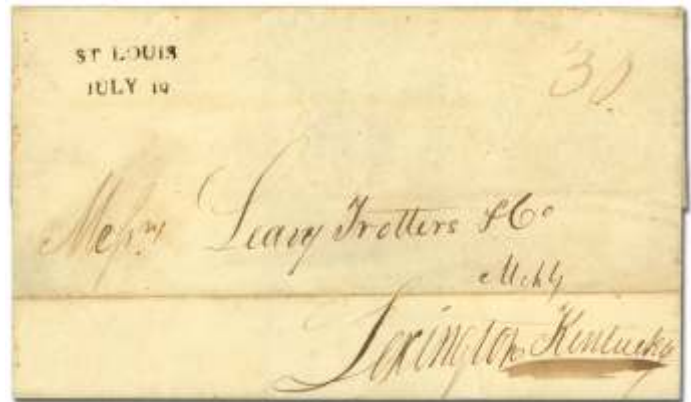 ST LOUIS
IULY 19
Messrs Leavy Trotters & Co
Lexington Kentucky